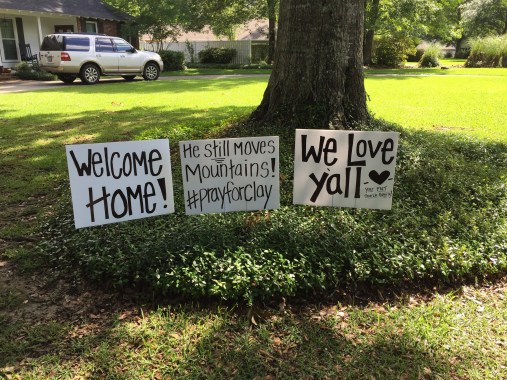 Welcome
Home!
He still moves
Mountains!
#prayforclay
We Love
y'all